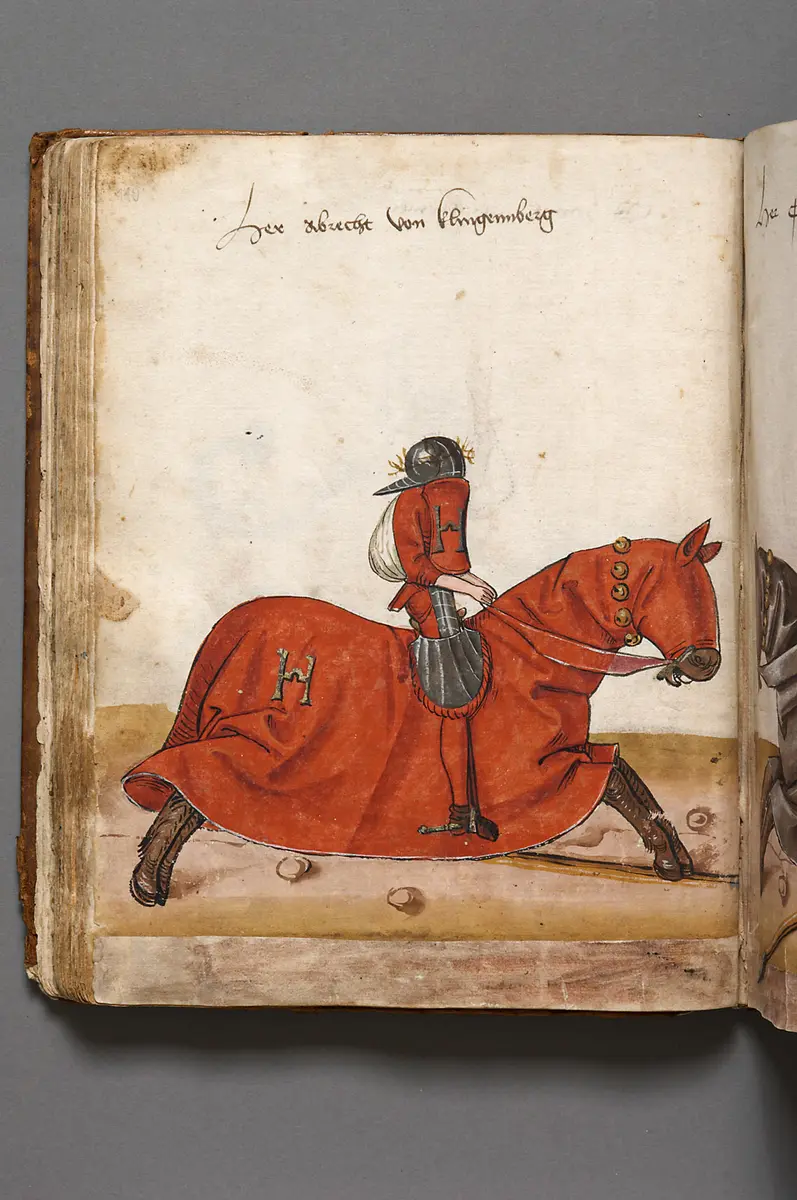 Her abrecht von klingennberg
H
H
Her